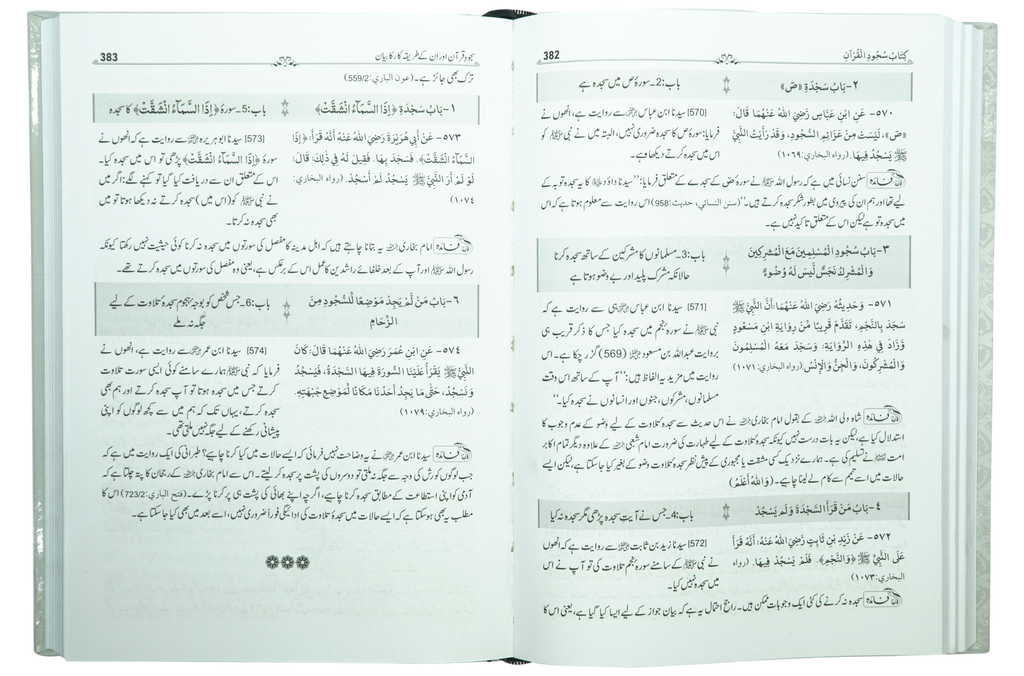 کِتَابُ سُجُودِ الْقُرْآنِ
382
٢-بَابُ سَجْدَةِ «ص»
باب:2۔سورۂ ص میں سجدہ ہے
٥٧٠- عَنِ ابْنِ عَبَّاسٍ رَضِيَ اللهُ عَنْهُمَا قَالَ:
«ص»، لَيْسَتْ مِنْ عَزَائِمِ السُّجُودِ، وَقَدْ رَأَيْتُ النَّبِيَّ
ﷺ يَسْجُدُ فِيهَا. (رواه البخاري: ١٠٦٩)
[570] سیدنا ابن عباس ؓ سے روایت ہے، انھوں نے
فرمایا: سورۂ ص کا سجدہ ضروری نہیں، البتہ میں نے نبی ﷺ کو
اس میں سجدہ کرتے دیکھا ہے۔
فائدہ سنن نسائی میں ہے کہ رسول اللہ ﷺ نے سورۂ ص کے سجدے کے متعلق فرمایا: ’’سیدنا داؤد علیہ السلام کا یہ سجدہ توبہ کے
لیے تھا اور ہم ان کی پیروی میں بطور شکر سجدہ کرتے ہیں۔‘‘ (سنن النسائي، حديث: 958) اس روایت سے معلوم ہوتا ہے کہ اس
میں سجدہ تو ہے لیکن اس کے متعلق تاکید نہیں ہے۔
٣-بَابُ سُجُودِ الْمُسْلِمِينَ مَعَ الْمُشْرِكِينَ
وَالْمُشْرِكُ نَجَسٌ لَيْسَ لَهُ وُضُوءٌ
باب:3۔مسلمانوں کا مشرکین کے ساتھ سجدہ کرنا
حالانکہ مشرک پلید اور بے وضو ہوتا ہے
٥٧١- وَحَدِيثُهُ رَضِيَ اللهُ عَنْهُمَا: أَنَّ النَّبِيَّ ﷺ
سَجَدَ بِالنَّجْمِ، تَقَدَّمَ قَرِيبًا مِّنْ رِوَايَةِ ابْنِ مَسْعُودٍ
وَزَادَ فِي هَذِهِ الرِّوَايَةِ: وَسَجَدَ مَعَهُ الْمُسْلِمُونَ
وَالْمُشْرِكُونَ، وَالْجِنُّ وَالْإِنْسُ. (رواه البخاري: ١٠٧١)
[571] سیدنا ابن عباس ؓ ہی سے روایت ہے کہ
نبی ﷺ نے سورۂ نجم میں سجدہ کیا جس کا ذکر قریب ہی
بروایت عبداللہ بن مسعود ؓ (569) گزر چکا ہے۔ اس
روایت میں مزید یہ الفاظ ہیں: ’’آپ کے ساتھ اس وقت
مسلمانوں، مشرکوں، جنوں اور انسانوں نے سجدہ کیا۔‘‘
فائدہ شاہ ولی اللہ کے بقول امام بخاری نے اس حدیث سے سجدۂ تلاوت کے لیے وضو کے عدم وجوب کا
استدلال کیا ہے، لیکن یہ بات درست نہیں کیونکہ سجدۂ تلاوت کے لیے طہارت کی ضرورت امام شعبی کے علاوہ دیگر تمام اکابر
امت نے تسلیم کی ہے۔ ہمارے نزدیک کسی مشقت یا مجبوری کے پیش نظر سجدۂ تلاوت وضو کے بغیر کیا جا سکتا ہے، لیکن ایسے
حالات میں اسے تیمم سے کام لے لینا چاہیے۔ (وَاللهُ أَعْلَمُ)
٤-بَابُ مَنْ قَرَأَ السَّجْدَةَ وَلَمْ يَسْجُدْ
باب:4۔جس نے آیتِ سجدہ پڑھی مگر سجدہ نہ کیا
٥٧٢- عَنْ زَيْدِ بْنِ ثَابِتٍ رَضِيَ اللهُ عَنْهُ: أَنَّهُ قَرَأَ
عَلَى النَّبِيِّ ﷺ ﴿وَالنَّجْمِ﴾. فَلَمْ يَسْجُدْ فِيهَا. (رواه
البخاري: ١٠٧٣)
[572] سیدنا زید بن ثابت ؓ سے روایت ہے کہ انھوں
نے نبی ﷺ کے سامنے سورۂ نجم تلاوت کی تو آپ نے اس
میں سجدہ نہیں کیا۔
فائدہ سجدہ نہ کرنے کی کئی ایک وجوہات ممکن ہیں۔ راجح احتمال یہ ہے کہ بیان جواز کے لیے ایسا کیا گیا ہے، یعنی اس کا
سجودِ قرآن اور ان کے طریقہ کار کا بیان
383
ترک بھی جائز ہے۔ (عون الباري: 559/2)
١-بَابُ سَجْدَةِ ﴿إِذَا السَّمَآءُ انْشَقَّتْ﴾
باب:5۔سورۂ ﴿إِذَا السَّمَآءُ انْشَقَّتْ﴾ کا سجدہ
٥٧٣- عَنْ أَبِي هُرَيْرَةَ رَضِيَ اللهُ عَنْهُ أَنَّهُ قَرَأَ: ﴿إِذَا
السَّمَآءُ انْشَقَّتْ﴾. فَسَجَدَ بِهَا. فَقِيلَ لَهُ فِي ذٰلِكَ. قَالَ:
لَوْ لَمْ أَرَ النَّبِيَّ ﷺ يَسْجُدُ لَمْ أَسْجُدْ. (رواه البخاري:
١٠٧٤)
[573] سیدنا ابو ہریرہ ؓ سے روایت ہے کہ انھوں نے
سورۂ ﴿إِذَا السَّمَآءُ انْشَقَّتْ﴾ پڑھی تو اس میں سجدہ کیا۔
اس کے متعلق ان سے دریافت کیا گیا تو کہنے لگے: اگر میں
نے نبی ﷺ کو (اس میں) سجدہ کرتے نہ دیکھا ہوتا تو میں
بھی سجدہ نہ کرتا۔
فائدہ امام بخاری یہ بتانا چاہتے ہیں کہ اہل مدینہ کا مفصل کی سورتوں میں سجدہ نہ کرنا کوئی حیثیت نہیں رکھتا کیونکہ
رسول اللہ ﷺ اور آپ کے بعد خلفائے راشدین کا عمل اس کے برعکس ہے، یعنی وہ مفصل کی سورتوں میں سجدہ کرتے تھے۔
٦-بَابُ مَنْ لَمْ يَجِدْ مَوْضِعًا لِّلسُّجُودِ مِنَ
الزِّحَامِ
باب:6۔جس شخص کو بوجہ ہجوم سجدۂ تلاوت کے لیے
جگہ نہ ملے
٥٧٤- عَنِ ابْنِ عُمَرَ رَضِيَ اللهُ عَنْهُمَا قَالَ: كَانَ
النَّبِيُّ ﷺ يَقْرَأُ عَلَيْنَا السُّورَةَ فِيهَا السَّجْدَةُ، فَيَسْجُدُ
وَنَسْجُدُ، حَتَّى مَا يَجِدُ أَحَدُنَا مَكَانًا لِّمَوْضِعِ جَبْهَتِهِ.
(رواه البخاري: ١٠٧٩)
[574] سیدنا ابن عمر ؓ سے روایت ہے، انھوں نے
فرمایا کہ نبی ﷺ ہمارے سامنے کوئی ایسی سورت تلاوت
کرتے جس میں سجدہ ہوتا تو آپ سجدہ کرتے اور ہم بھی
سجدہ کرتے، یہاں تک کہ ہم میں سے کچھ لوگوں کو اپنی
پیشانی رکھنے کے لیے جگہ نہیں ملتی تھی۔
فائدہ سیدنا ابن عمر ؓ نے یہ وضاحت نہیں فرمائی کہ ایسے حالات میں کیا کرنا چاہیے؟ طبرانی کی ایک روایت میں ہے کہ
جب لوگوں کو رش کی وجہ سے جگہ نہ ملتی تو دوسروں کی پشت پر سجدہ کر لیتے۔ اس سے امام بخاری کے رجحان کا پتہ چلتا ہے کہ
آدمی کو اپنی استطاعت کے مطابق سجدہ کرنا چاہیے، اگرچہ اپنے بھائی کی پشت ہی پر کرنا پڑے۔ (فتح الباري: 723/2) اس کا
مطلب یہ بھی ہو سکتا ہے کہ ایسے حالات میں سجدۂ تلاوت کی ادائیگی فوراً ضروری نہیں، اسے بعد میں بھی کیا جا سکتا ہے۔